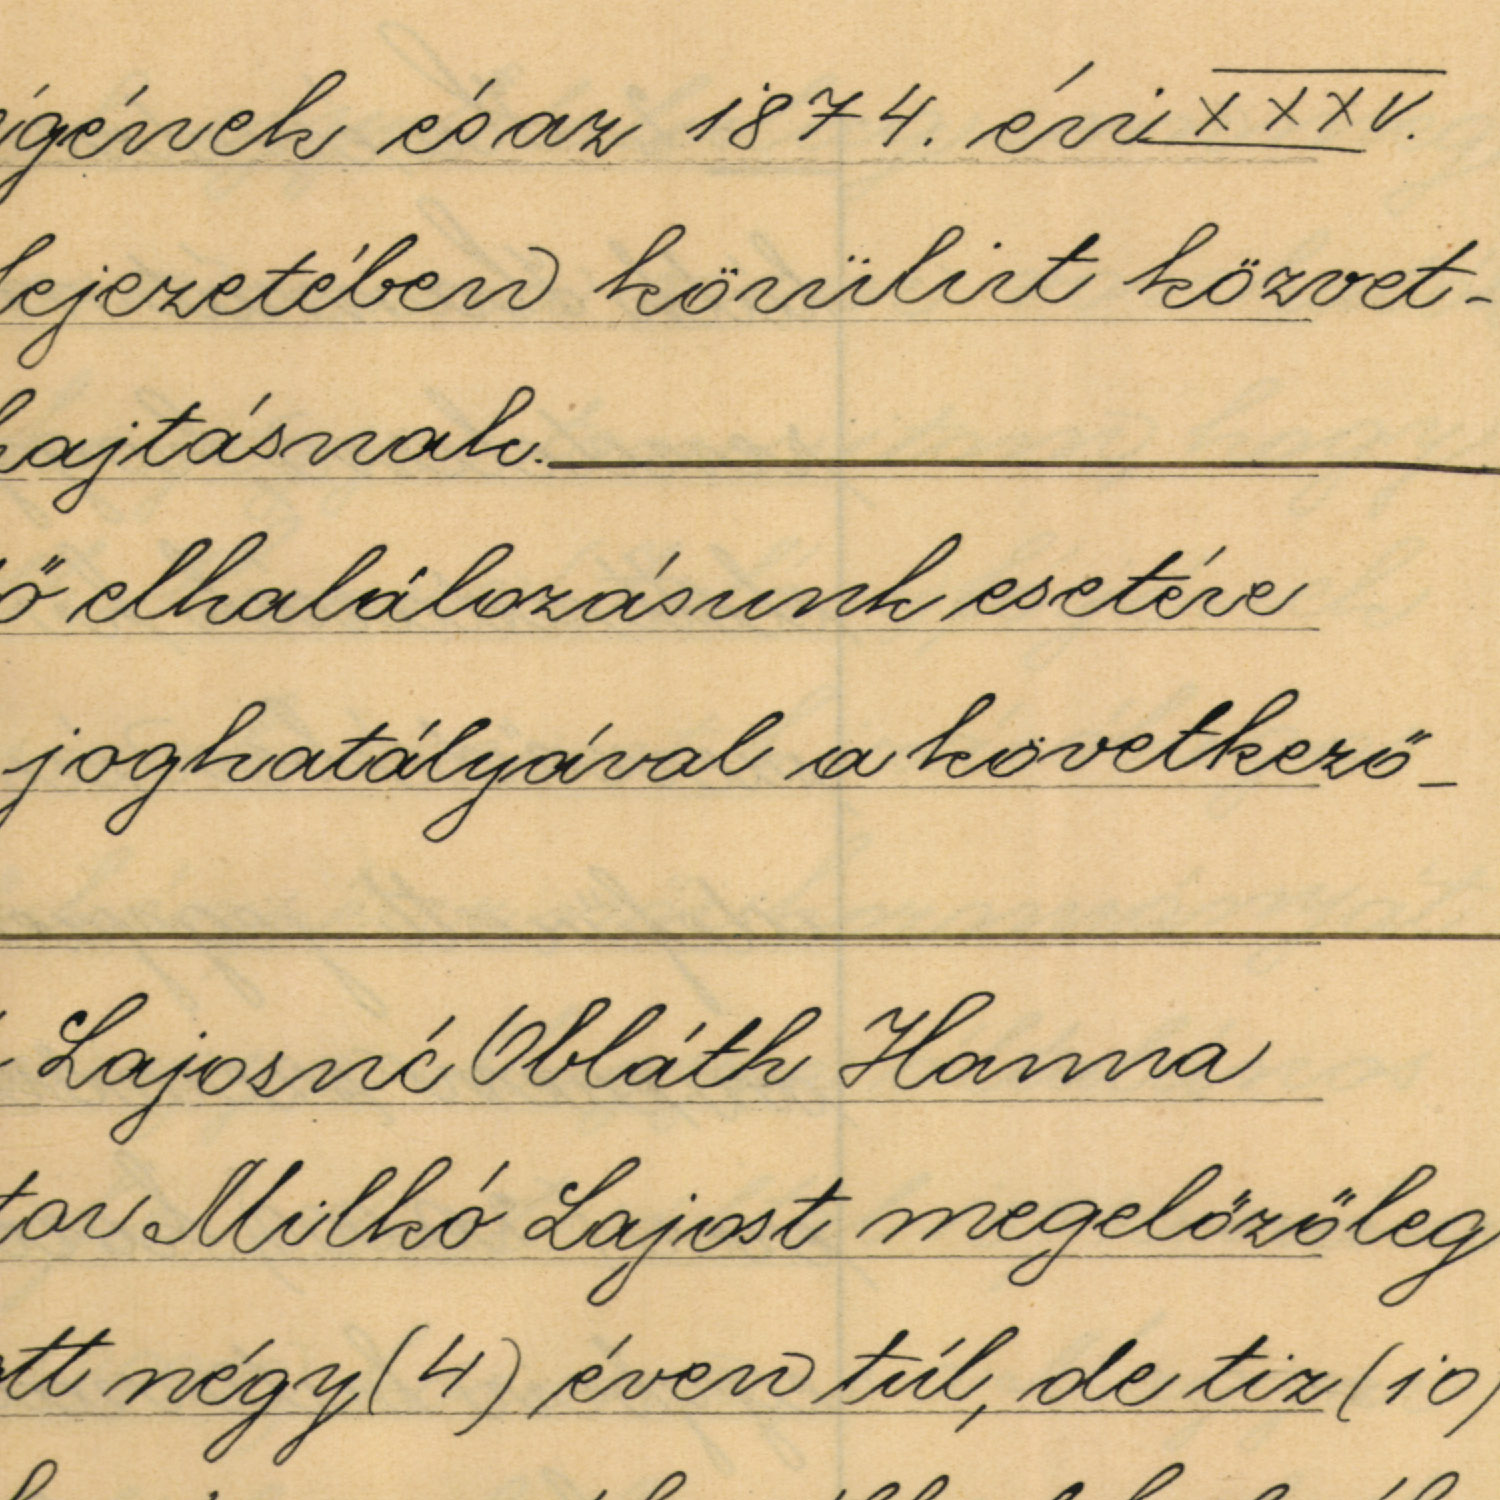 igének és az 1874. évi XXXV.
fejezetében körülirt közvet-
hajtásnak.
ő elhalálozásunk esetére
joghatályával a következő-
Lajosné Obláth Hanna
tor Milkó Lajost megelőzőleg
ott négy (4) éven túl, de tiz (10)